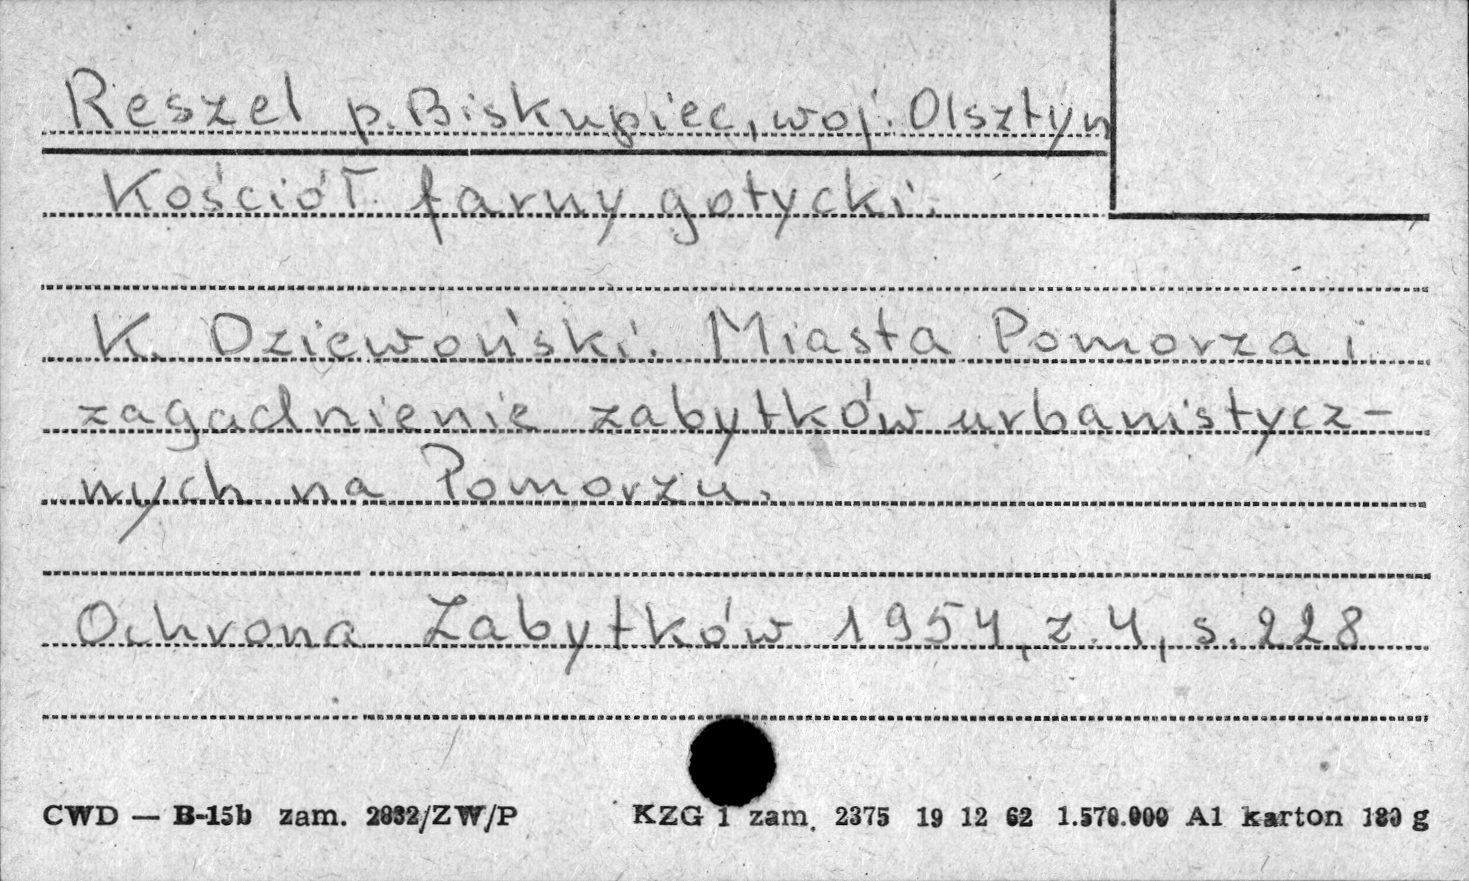 Reszel p. Biskupiec, woj. Olsztyn
Kościół farny gotycki.
K. Dziewoński. Miasta Pomorza i
zagadnienie zabytków urbanistycz-
nych na Pomorzu.
Ochrona Zabytków 1954, z.4, s.228
CWD — B-15b zam. 2032/ZW/P KZG 1 zam. 2375 19 12 62 1.570.000 A1 karton 180 g